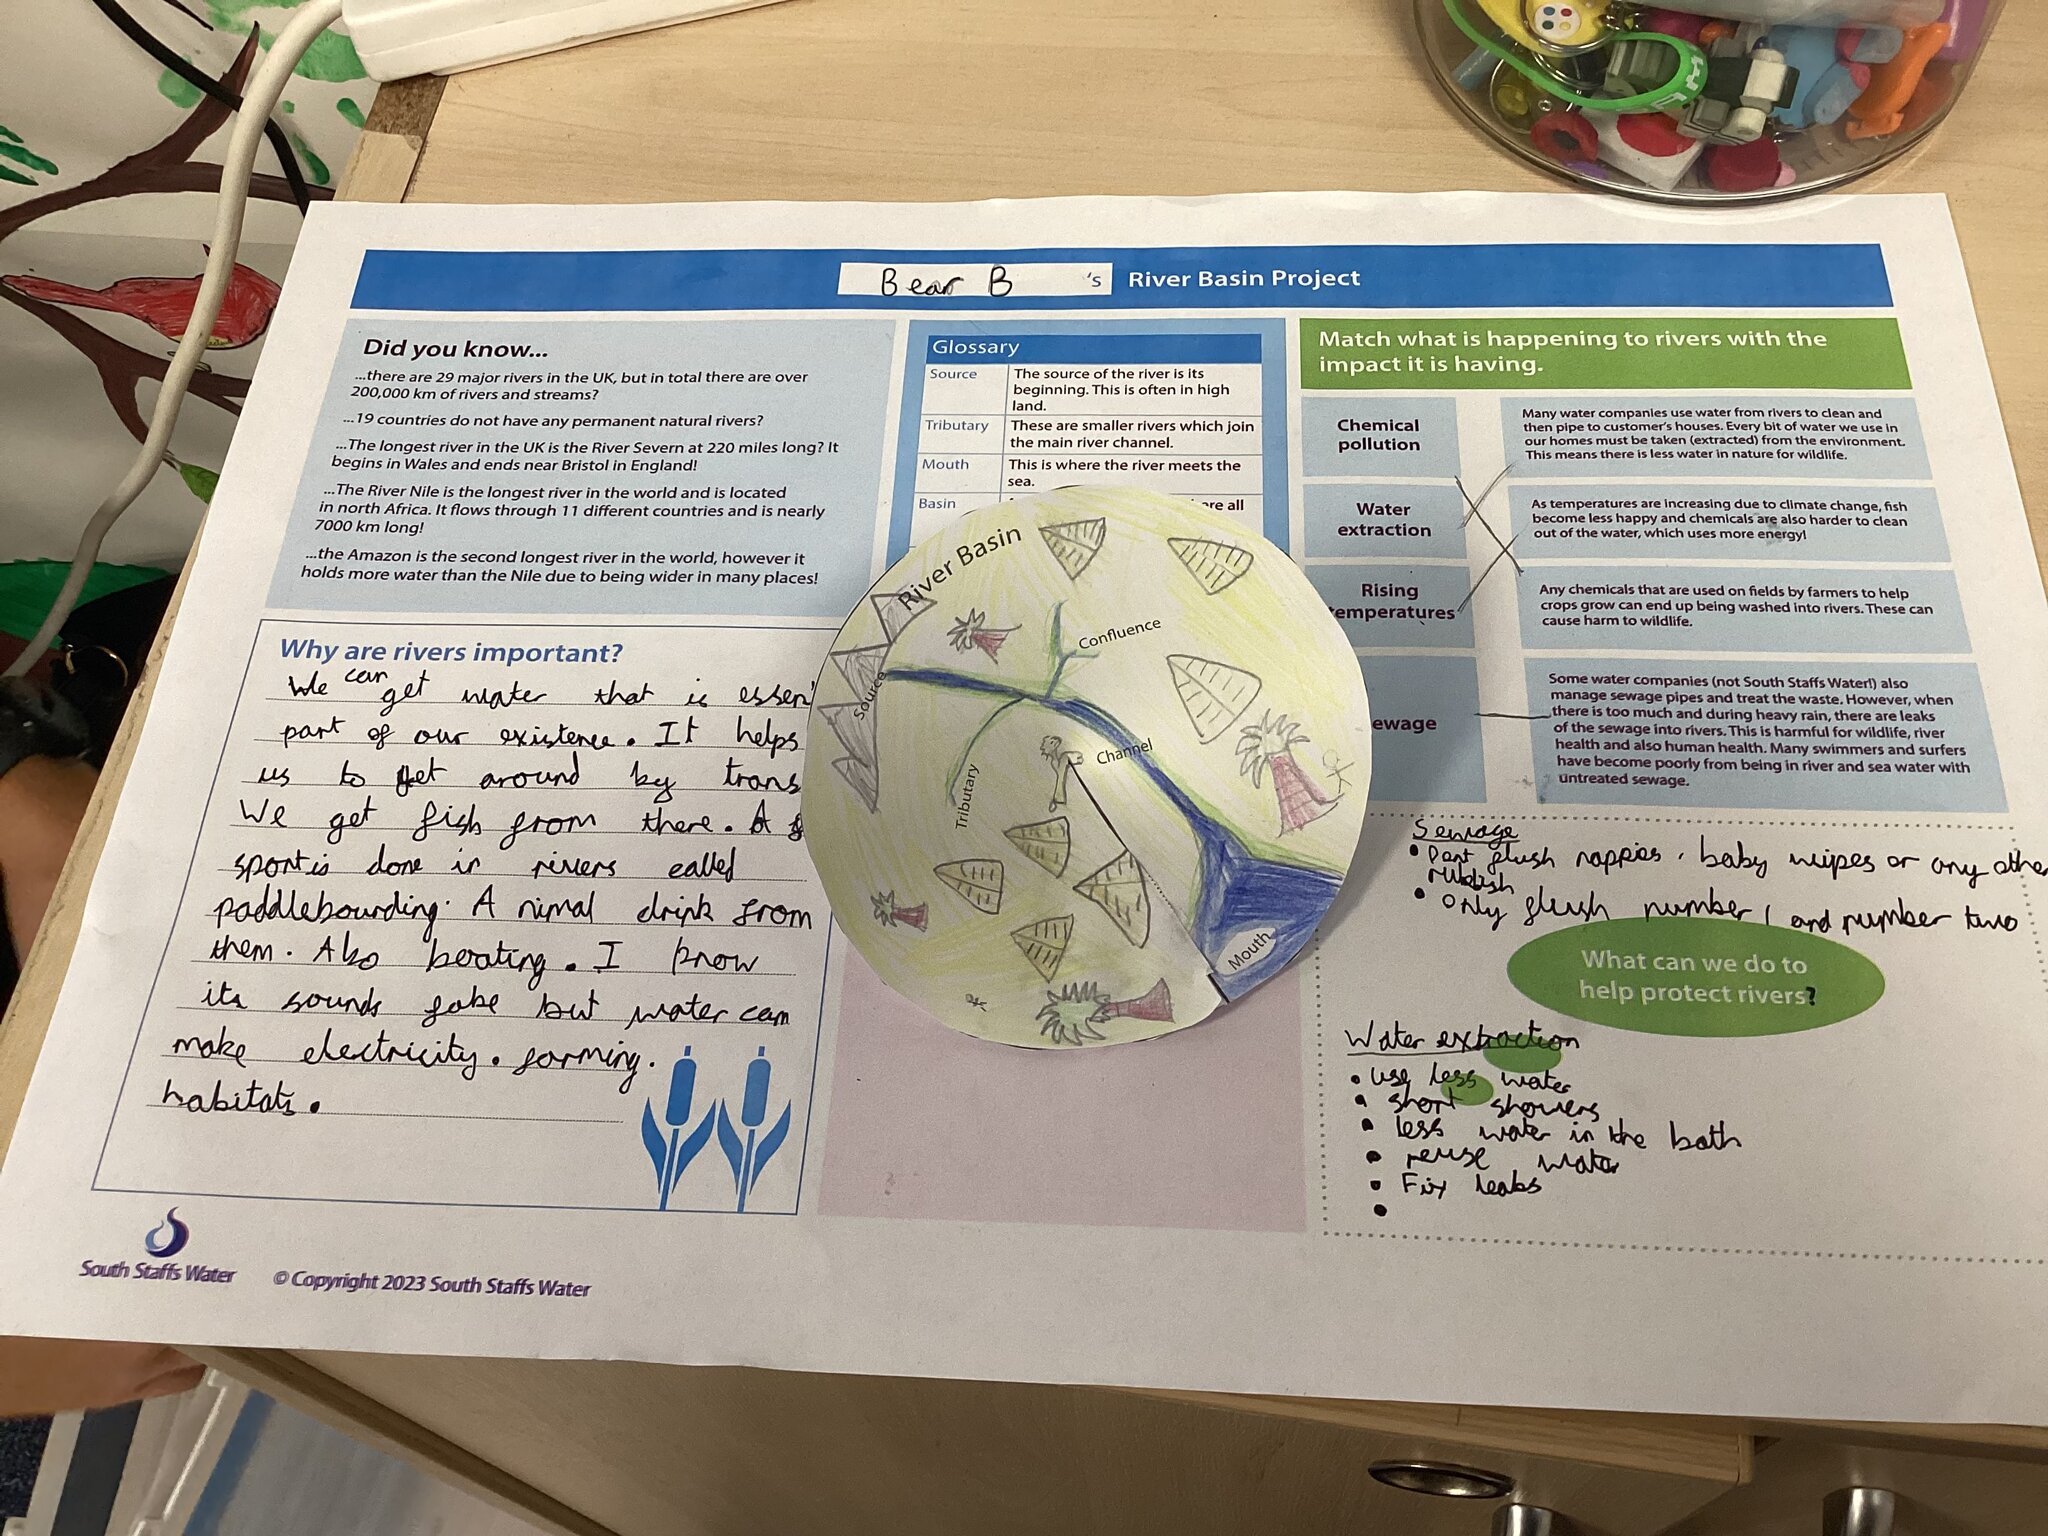 Bear B 's River Basin Project
Did you know...
...there are 29 major rivers in the UK, but in total there are over
200,000 km of rivers and streams?
...19 countries do not have any permanent natural rivers?
...The longest river in the UK is the River Severn at 220 miles long? It
begins in Wales and ends near Bristol in England!
...The River Nile is the longest river in the world and is located
in north Africa. It flows through 11 different countries and is nearly
7000 km long!
...the Amazon is the second longest river in the world, however it
holds more water than the Nile due to being wider in many places!
Why are rivers important?
We can get water that is essen
part of our existence. It helps
us to get around by trans
We get fish from there. A
sport is done in rivers called
paddlebourding. A nimal drink from
them. Also boating. I know
its sounds fake but water can
make electricity. farming.
habitats.
South Staffs Water
© Copyright 2023 South Staffs Water
Glossary
Source The source of the river is its
beginning. This is often in high
land.
Tributary These are smaller rivers which join
the main river channel.
Mouth This is where the river meets the
sea.
Basin ere all
River Basin
Source
Confluence
Channel
Tributary
Mouth
Match what is happening to rivers with the
impact it is having.
Chemical
pollution
Water
extraction
Rising
temperatures
ewage
Many water companies use water from rivers to clean and
then pipe to customer's houses. Every bit of water we use in
our homes must be taken (extracted) from the environment.
This means there is less water in nature for wildlife.
As temperatures are increasing due to climate change, fish
become less happy and chemicals are also harder to clean
out of the water, which uses more energy!
Any chemicals that are used on fields by farmers to help
crops grow can end up being washed into rivers. These can
cause harm to wildlife.
Some water companies (not South Staffs Water!) also
manage sewage pipes and treat the waste. However, when
there is too much and during heavy rain, there are leaks
of the sewage into rivers. This is harmful for wildlife, river
health and also human health. Many swimmers and surfers
have become poorly from being in river and sea water with
untreated sewage.
Sewage
• Dont flush nappies, baby wipes or any othe
rubbish
• Only flush number 1 and number two
What can we do to
help protect rivers?
Water extraction
• use less water
• short showers
• less water in the bath
• reuse water
• Fix leaks
•